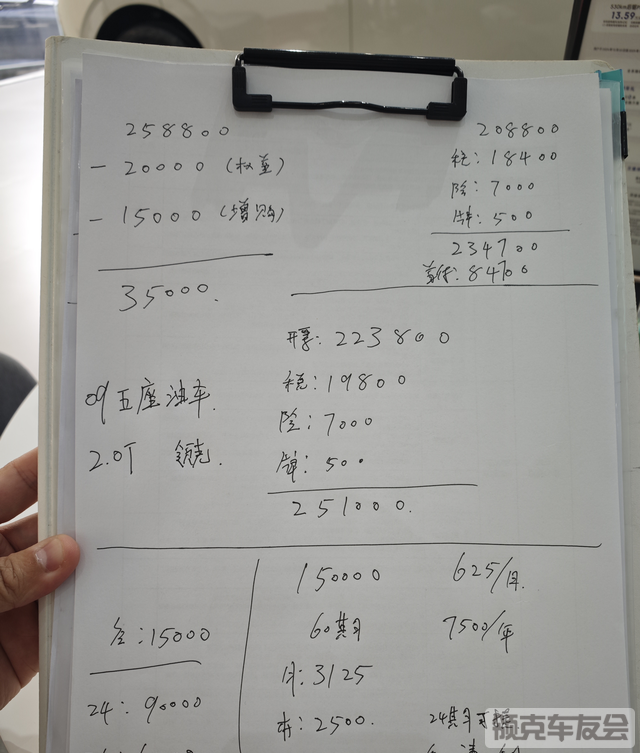 258800
- 20000 (权益)
- 15000 (增购)
35000.
208800
税: 18400
险: 7000
牌: 500
234700
首付: 84700
开票: 223800
税: 19800
险: 7000
牌: 500
251000.
09五座油车.
2.0T 领克.
全: 15000
24: 90000
150000
60期
月: 3125
本: 2500.
625/月.
7500/年
24期可
13.59
领克车友会